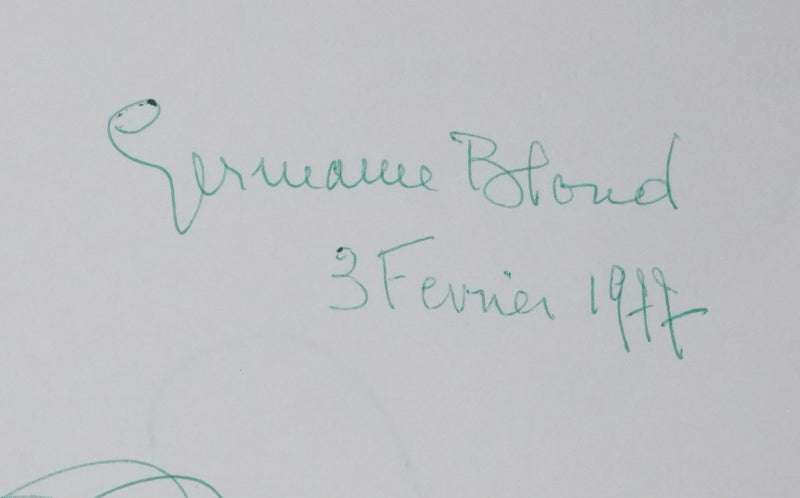 Germaine Blond
3 Fevrier 1977